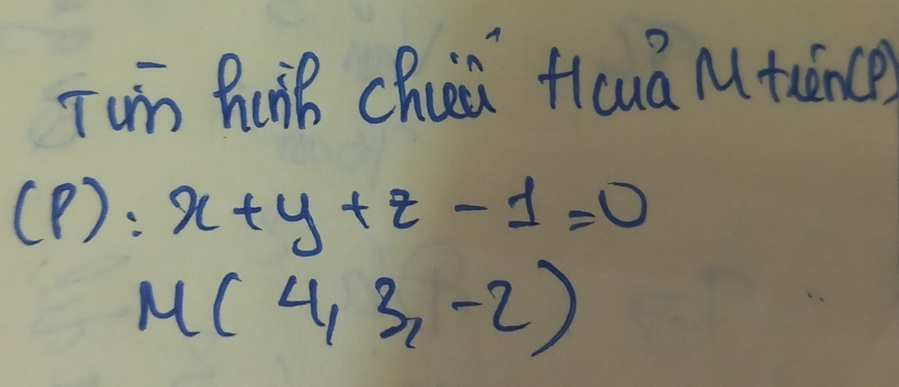 Tìm hình chiếu H của M trên (P)
(P): x + y + z - 1 = 0
M( 4, 3, -2)